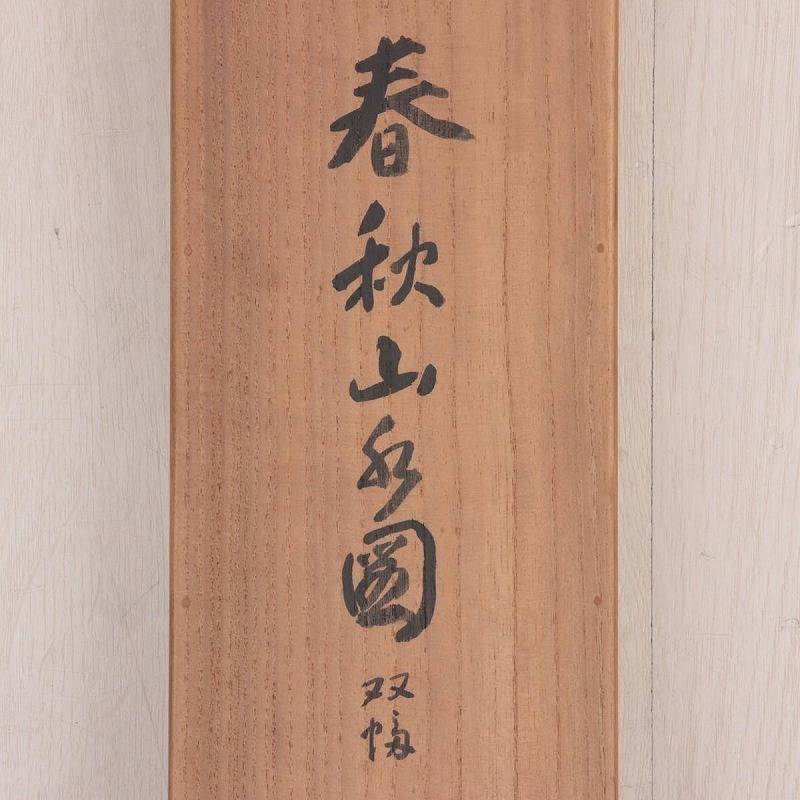 春秋山水圖 双幅